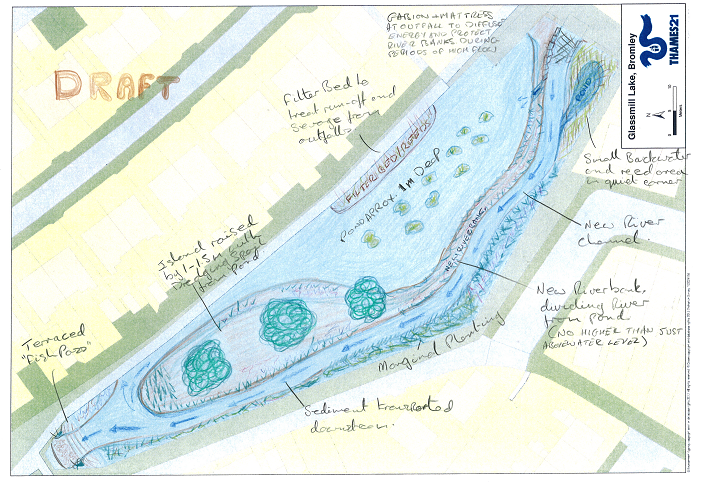 DRAFT
GABION + MATTRESS
AT OUTFALL TO DIFFUSE
ENERGY AND PROTECT
RIVER BANKS DURING
PERIODS OF HIGH FLOW
Glassmill Lake, Bromley
THAMES21
N
0
10
Meters
Filter Bed to
treat run-off and
Sewage from
outfalls
FILTER BED/REEDS
POND APPROX. 1m DEEP
POND
Small Backwater
and reed area
in quiet corner
New River
channel.
NEW RIVERBANK
New Riverbank,
dividing River
from pond
(NO HIGHER THAN JUST
ABOVE WATER LEVEL)
Island raised
by 1-1.5m with
Dredging Spoil
from Pond
Terraced
"Fish Pass"
Marginal Planting
Sediment transported
downstream.